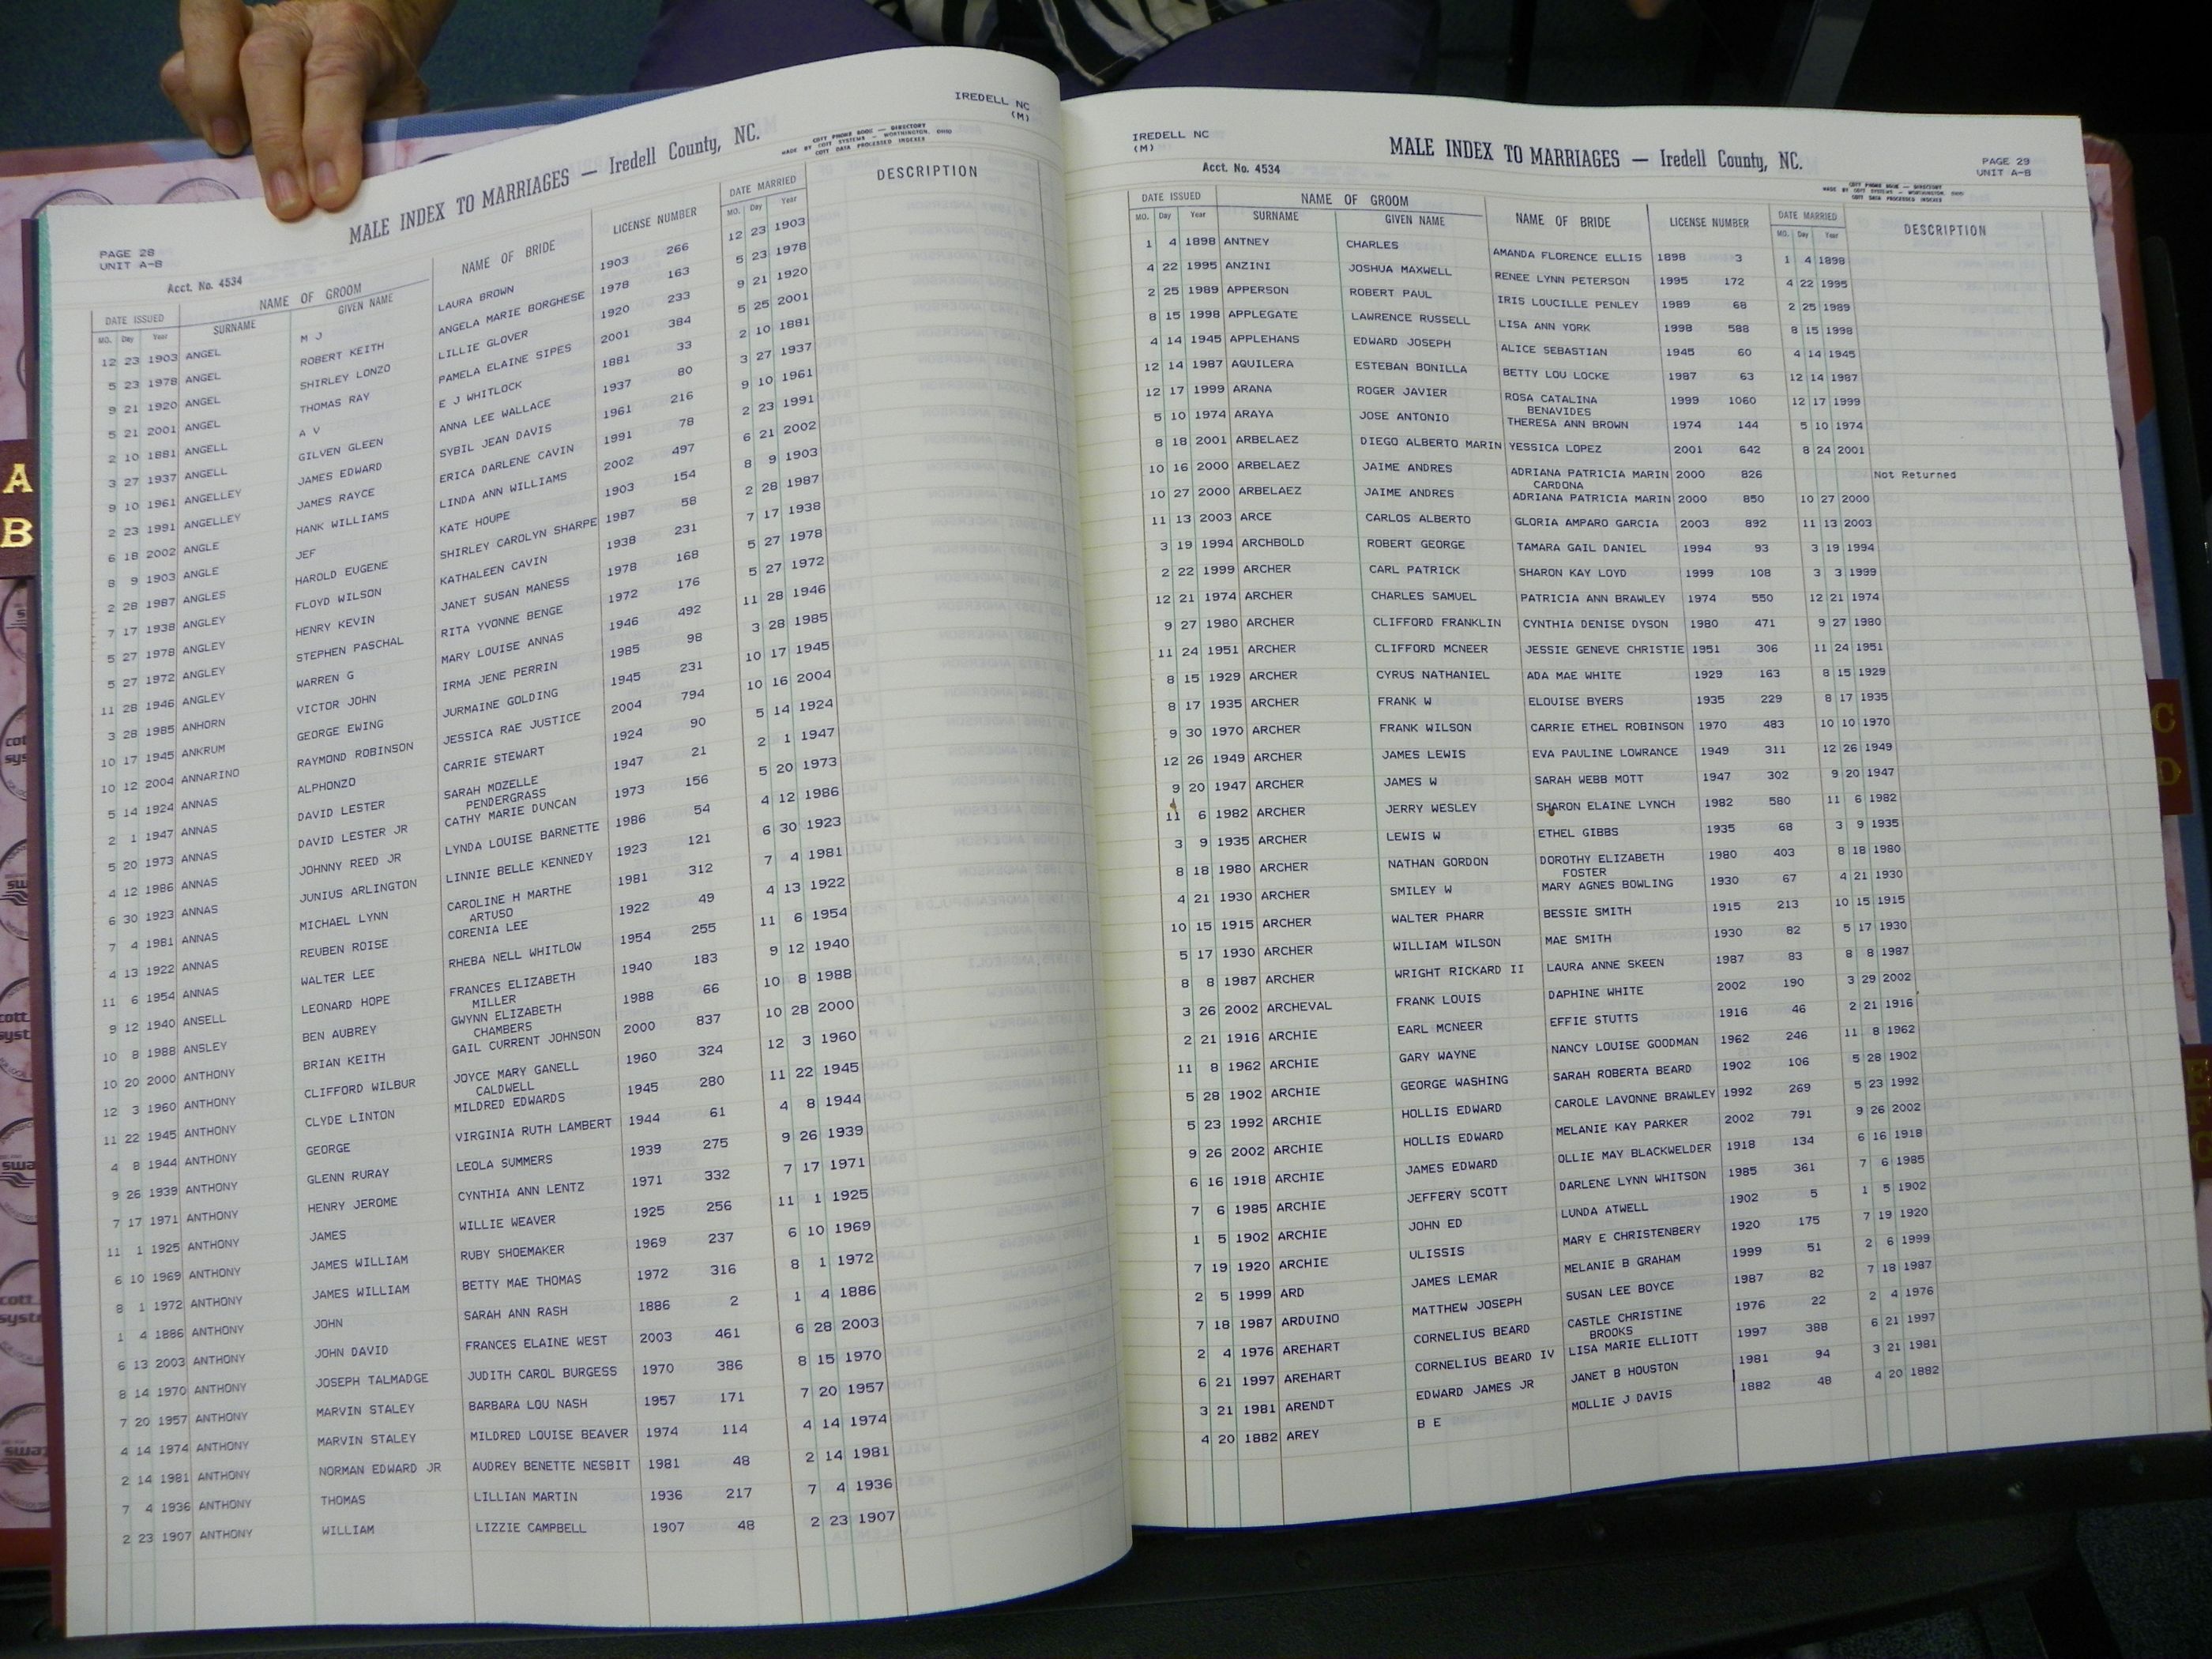 IREDELL NC
(M)
MALE INDEX TO MARRIAGES — Iredell County, NC.
COTT PHONE BOOK — DIRECTORY
MADE BY COTT SYSTEMS — WORTHINGTON, OHIO
COTT DATA PROCESSED INDEXES
PAGE 28
UNIT A-B
Acct. No. 4534
DATE ISSUED NAME OF GROOM NAME OF BRIDE LICENSE NUMBER DATE MARRIED DESCRIPTION
MO. Day Year SURNAME GIVEN NAME MO. Day Year
12 23 1903 ANGEL M J LAURA BROWN 1903 266 12 23 1903
5 23 1978 ANGEL ROBERT KEITH ANGELA MARIE BORGHESE 1978 163 5 23 1978
9 21 1920 ANGEL SHIRLEY LONZO LILLIE GLOVER 1920 233 9 21 1920
5 21 2001 ANGEL THOMAS RAY PAMELA ELAINE SIPES 2001 384 5 25 2001
2 10 1881 ANGELL A V E J WHITLOCK 1881 33 2 10 1881
3 27 1937 ANGELL GILVEN GLEEN ANNA LEE WALLACE 1937 80 3 27 1937
9 10 1961 ANGELLEY JAMES EDWARD SYBIL JEAN DAVIS 1961 216 9 10 1961
2 23 1991 ANGELLEY JAMES RAYCE ERICA DARLENE CAVIN 1991 78 2 23 1991
6 18 2002 ANGLE HANK WILLIAMS LINDA ANN WILLIAMS 2002 497 6 21 2002
8 9 1903 ANGLE JEF KATE HOUPE 1903 154 8 9 1903
2 28 1987 ANGLES HAROLD EUGENE SHIRLEY CAROLYN SHARPE 1987 58 2 28 1987
7 17 1938 ANGLEY FLOYD WILSON KATHALEEN CAVIN 1938 231 7 17 1938
5 27 1978 ANGLEY HENRY KEVIN JANET SUSAN MANESS 1978 168 5 27 1978
5 27 1972 ANGLEY STEPHEN PASCHAL RITA YVONNE BENGE 1972 176 5 27 1972
11 28 1946 ANGLEY WARREN G MARY LOUISE ANNAS 1946 492 11 28 1946
3 28 1985 ANHORN VICTOR JOHN IRMA JENE PERRIN 1985 98 3 28 1985
10 17 1945 ANKRUM GEORGE EWING JURMAINE GOLDING 1945 231 10 17 1945
10 12 2004 ANNARINO RAYMOND ROBINSON JESSICA RAE JUSTICE 2004 794 10 16 2004
5 14 1924 ANNAS ALPHONZO CARRIE STEWART 1924 90 5 14 1924
2 1 1947 ANNAS DAVID LESTER SARAH MOZELLE 1947 21 2 1 1947
PENDERGRASS
5 20 1973 ANNAS DAVID LESTER JR CATHY MARIE DUNCAN 1973 156 5 20 1973
4 12 1986 ANNAS JOHNNY REED JR LYNDA LOUISE BARNETTE 1986 54 4 12 1986
6 30 1923 ANNAS JUNIUS ARLINGTON LINNIE BELLE KENNEDY 1923 121 6 30 1923
7 4 1981 ANNAS MICHAEL LYNN CAROLINE H MARTHE 1981 312 7 4 1981
ARTUSO
4 13 1922 ANNAS REUBEN ROISE CORENIA LEE 1922 49 4 13 1922
11 6 1954 ANNAS WALTER LEE RHEBA NELL WHITLOW 1954 255 11 6 1954
9 12 1940 ANSELL LEONARD HOPE FRANCES ELIZABETH 1940 183 9 12 1940
MILLER
10 8 1988 ANSLEY BEN AUBREY GWYNN ELIZABETH 1988 66 10 8 1988
CHAMBERS
10 20 2000 ANTHONY BRIAN KEITH GAIL CURRENT JOHNSON 2000 837 10 28 2000
12 3 1960 ANTHONY CLIFFORD WILBUR JOYCE MARY GANELL 1960 324 12 3 1960
CALDWELL
11 22 1945 ANTHONY CLYDE LINTON MILDRED EDWARDS 1945 280 11 22 1945
4 8 1944 ANTHONY GEORGE VIRGINIA RUTH LAMBERT 1944 61 4 8 1944
9 26 1939 ANTHONY GLENN RURAY LEOLA SUMMERS 1939 275 9 26 1939
7 17 1971 ANTHONY HENRY JEROME CYNTHIA ANN LENTZ 1971 332 7 17 1971
11 1 1925 ANTHONY JAMES WILLIE WEAVER 1925 256 11 1 1925
6 10 1969 ANTHONY JAMES WILLIAM RUBY SHOEMAKER 1969 237 6 10 1969
8 1 1972 ANTHONY JAMES WILLIAM BETTY MAE THOMAS 1972 316 8 1 1972
1 4 1886 ANTHONY JOHN SARAH ANN RASH 1886 2 1 4 1886
6 13 2003 ANTHONY JOHN DAVID FRANCES ELAINE WEST 2003 461 6 28 2003
8 14 1970 ANTHONY JOSEPH TALMADGE JUDITH CAROL BURGESS 1970 386 8 15 1970
7 20 1957 ANTHONY MARVIN STALEY BARBARA LOU NASH 1957 171 7 20 1957
4 14 1974 ANTHONY MARVIN STALEY MILDRED LOUISE BEAVER 1974 114 4 14 1974
2 14 1981 ANTHONY NORMAN EDWARD JR AUDREY BENETTE NESBIT 1981 48 2 14 1981
7 4 1936 ANTHONY THOMAS LILLIAN MARTIN 1936 217 7 4 1936
2 23 1907 ANTHONY WILLIAM LIZZIE CAMPBELL 1907 48 2 23 1907
IREDELL NC
(M)
MALE INDEX TO MARRIAGES — Iredell County, NC.
PAGE 29
UNIT A-B
Acct. No. 4534
COTT PHONE BOOK — DIRECTORY
MADE BY COTT SYSTEMS — WORTHINGTON, OHIO
COTT DATA PROCESSED INDEXES
DATE ISSUED NAME OF GROOM NAME OF BRIDE LICENSE NUMBER DATE MARRIED DESCRIPTION
MO. Day Year SURNAME GIVEN NAME MO. Day Year
1 4 1898 ANTNEY CHARLES AMANDA FLORENCE ELLIS 1898 3 1 4 1898
4 22 1995 ANZINI JOSHUA MAXWELL RENEE LYNN PETERSON 1995 172 4 22 1995
2 25 1989 APPERSON ROBERT PAUL IRIS LOUCILLE PENLEY 1989 68 2 25 1989
8 15 1998 APPLEGATE LAWRENCE RUSSELL LISA ANN YORK 1998 588 8 15 1998
4 14 1945 APPLEHANS EDWARD JOSEPH ALICE SEBASTIAN 1945 60 4 14 1945
12 14 1987 AQUILERA ESTEBAN BONILLA BETTY LOU LOCKE 1987 63 12 14 1987
12 17 1999 ARANA ROGER JAVIER ROSA CATALINA 1999 1060 12 17 1999
BENAVIDES
5 10 1974 ARAYA JOSE ANTONIO THERESA ANN BROWN 1974 144 5 10 1974
8 18 2001 ARBELAEZ DIEGO ALBERTO MARIN YESSICA LOPEZ 2001 642 8 24 2001
10 16 2000 ARBELAEZ JAIME ANDRES ADRIANA PATRICIA MARIN 2000 826 Not Returned
CARDONA
10 27 2000 ARBELAEZ JAIME ANDRES ADRIANA PATRICIA MARIN 2000 850 10 27 2000
11 13 2003 ARCE CARLOS ALBERTO GLORIA AMPARO GARCIA 2003 892 11 13 2003
3 19 1994 ARCHBOLD ROBERT GEORGE TAMARA GAIL DANIEL 1994 93 3 19 1994
2 22 1999 ARCHER CARL PATRICK SHARON KAY LOYD 1999 108 3 3 1999
12 21 1974 ARCHER CHARLES SAMUEL PATRICIA ANN BRAWLEY 1974 550 12 21 1974
9 27 1980 ARCHER CLIFFORD FRANKLIN CYNTHIA DENISE DYSON 1980 471 9 27 1980
11 24 1951 ARCHER CLIFFORD MCNEER JESSIE GENEVE CHRISTIE 1951 306 11 24 1951
8 15 1929 ARCHER CYRUS NATHANIEL ADA MAE WHITE 1929 163 8 15 1929
8 17 1935 ARCHER FRANK W ELOUISE BYERS 1935 229 8 17 1935
9 30 1970 ARCHER FRANK WILSON CARRIE ETHEL ROBINSON 1970 483 10 10 1970
12 26 1949 ARCHER JAMES LEWIS EVA PAULINE LOWRANCE 1949 311 12 26 1949
9 20 1947 ARCHER JAMES W SARAH WEBB MOTT 1947 302 9 20 1947
11 6 1982 ARCHER JERRY WESLEY SHARON ELAINE LYNCH 1982 580 11 6 1982
3 9 1935 ARCHER LEWIS W ETHEL GIBBS 1935 68 3 9 1935
8 18 1980 ARCHER NATHAN GORDON DOROTHY ELIZABETH 1980 403 8 18 1980
FOSTER
4 21 1930 ARCHER SMILEY W MARY AGNES BOWLING 1930 67 4 21 1930
10 15 1915 ARCHER WALTER PHARR BESSIE SMITH 1915 213 10 15 1915
5 17 1930 ARCHER WILLIAM WILSON MAE SMITH 1930 82 5 17 1930
8 8 1987 ARCHER WRIGHT RICKARD II LAURA ANNE SKEEN 1987 83 8 8 1987
3 26 2002 ARCHEVAL FRANK LOUIS DAPHINE WHITE 2002 190 3 29 2002
2 21 1916 ARCHIE EARL MCNEER EFFIE STUTTS 1916 46 2 21 1916
11 8 1962 ARCHIE GARY WAYNE NANCY LOUISE GOODMAN 1962 246 11 8 1962
5 28 1902 ARCHIE GEORGE WASHING SARAH ROBERTA BEARD 1902 106 5 28 1902
5 23 1992 ARCHIE HOLLIS EDWARD CAROLE LAVONNE BRAWLEY 1992 269 5 23 1992
9 26 2002 ARCHIE HOLLIS EDWARD MELANIE KAY PARKER 2002 791 9 26 2002
6 16 1918 ARCHIE JAMES EDWARD OLLIE MAY BLACKWELDER 1918 134 6 16 1918
7 6 1985 ARCHIE JEFFERY SCOTT DARLENE LYNN WHITSON 1985 361 7 6 1985
1 5 1902 ARCHIE JOHN ED LUNDA ATWELL 1902 5 1 5 1902
7 19 1920 ARCHIE ULISSIS MARY E CHRISTENBERY 1920 175 7 19 1920
2 5 1999 ARD JAMES LEMAR MELANIE B GRAHAM 1999 51 2 6 1999
7 18 1987 ARDUINO MATTHEW JOSEPH SUSAN LEE BOYCE 1987 82 7 18 1987
2 4 1976 AREHART CORNELIUS BEARD CASTLE CHRISTINE 1976 22 2 4 1976
BROOKS
6 21 1997 AREHART CORNELIUS BEARD IV LISA MARIE ELLIOTT 1997 388 6 21 1997
3 21 1981 ARENDT EDWARD JAMES JR JANET B HOUSTON 1981 94 3 21 1981
4 20 1882 AREY B E MOLLIE J DAVIS 1882 48 4 20 1882
A
B
C
D